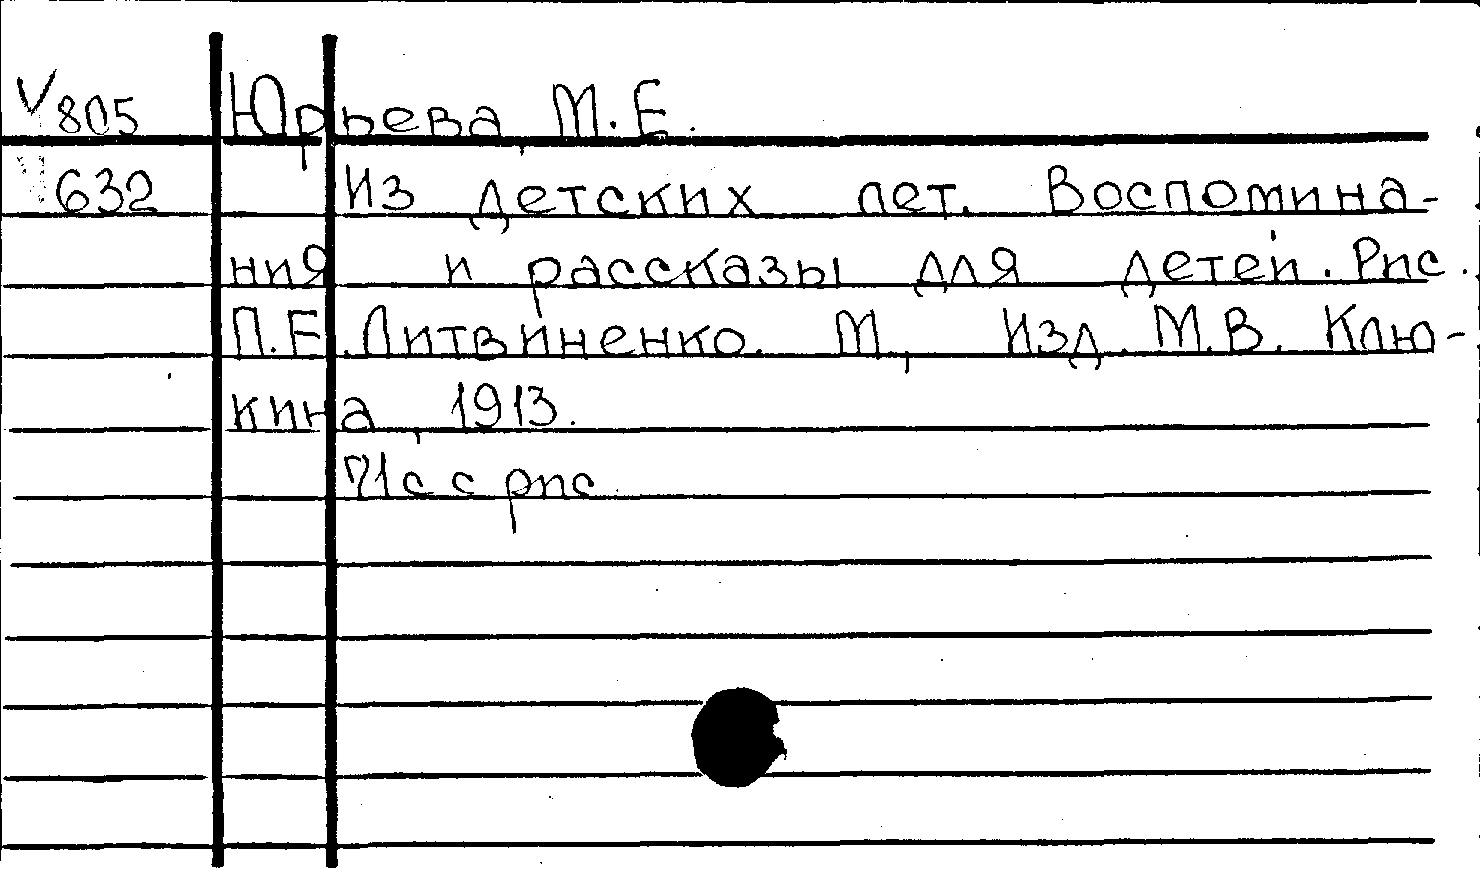 V 805 Юрьева, М. Е.
632 Из детских лет. Воспомина-
ния и рассказы для детей. Рис.
П.Е. Литвиненко. М., Изд. М.В. Клю-
кина, 1913.
71с с рис